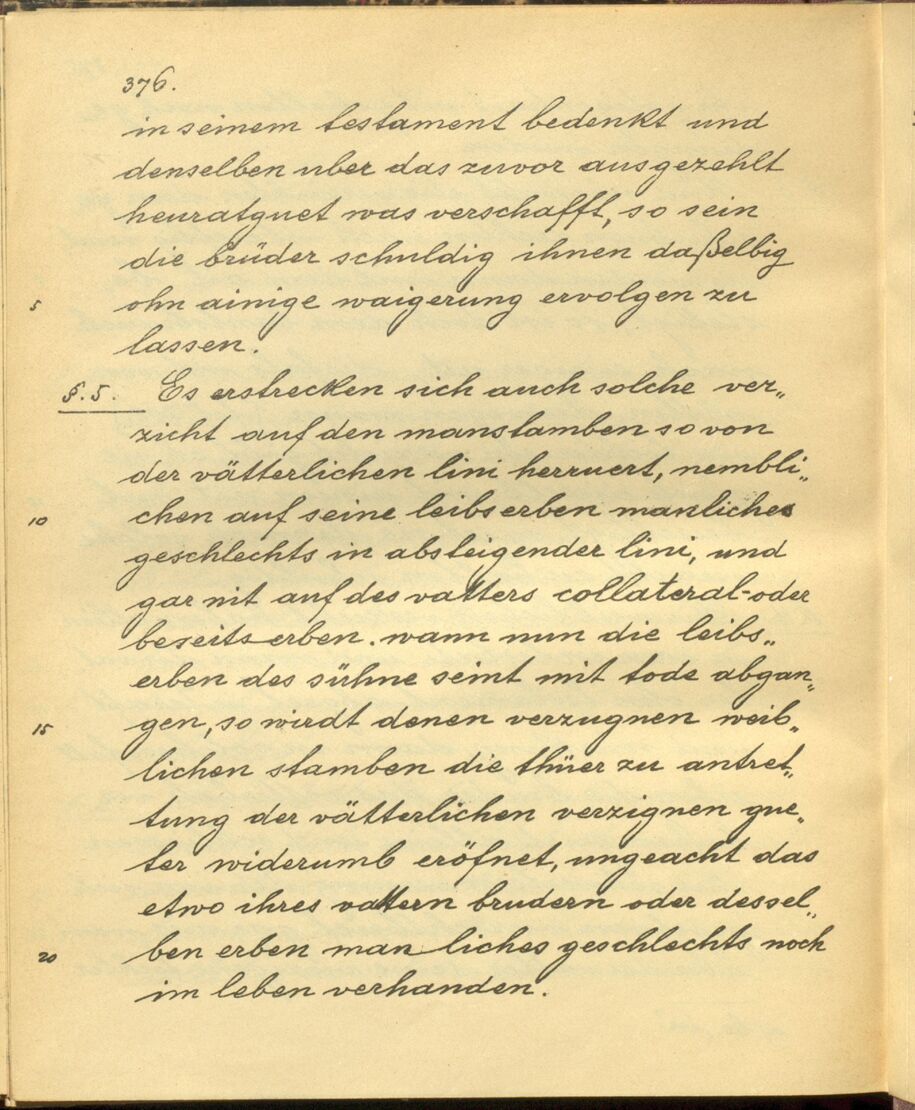 376.
in seinem testament bedenkt und
denselben uber das zuvor ausgezehlt
heuratguet was verschafft, so sein
die brüder schuldig ihnen daßelbig
5 ohn ainige waigerung ervolgen zu
lassen.
§. 5. Es erstrecken sich auch solche ver„
zicht auf den manstamben so von
der vätterlichen lini herruert, nembli„
10 chen auf seine leibserben manliches
geschlechts in absteigender lini, und
gar nit auf des vatters collateral-oder
beseits erben. wann nun die leibs„
erben des sühne seint mit tode abgan„
15 gen, so wirdt denen verzugnen weib„
lichen stamben die thüer zu antret„
tung der vätterlichen verzignen gue„
ter widerumb eröfnet, ungeacht das
etwo ihres vattern brudern oder dessel„
20 ben erben manliches geschlechts noch
im leben verhanden.